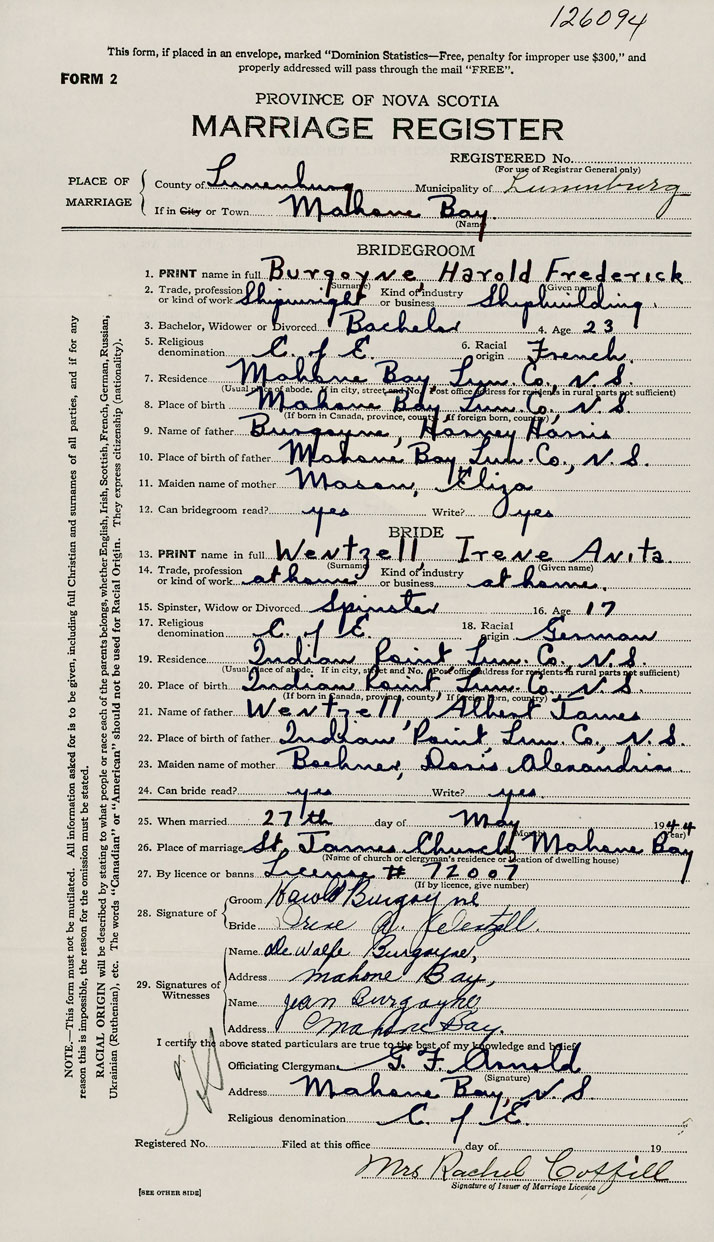 126094
This form, if placed in an envelope, marked “Dominion Statistics—Free, penalty for improper use $300,” and
properly addressed will pass through the mail “FREE”.
FORM 2
PROVINCE OF NOVA SCOTIA
MARRIAGE REGISTER
REGISTERED No.
(For use of Registrar General only)
PLACE OF MARRIAGE
County of Lunenburg Municipality of Lunenburg
If in City or Town Mahone Bay
(Name)
BRIDEGROOM
1. PRINT name in full Burgoyne, Harold Frederick
(Surname) (Given name)
2. Trade, profession or kind of work Shipwright Kind of industry or business Shipbuilding.
3. Bachelor, Widower or Divorced Bachelor 4. Age 23
5. Religious denomination C. of E. 6. Racial origin French.
7. Residence Mahone Bay Lun. Co., N.S.
(Usual place of abode. If in city, street and No. Post office address for residents in rural parts not sufficient)
8. Place of birth Mahone Bay Lun. Co., N.S.
(If born in Canada, province, county. If foreign born, country)
9. Name of father Burgoyne, Harvey Harris
10. Place of birth of father Mahone Bay Lun. Co., N.S.
11. Maiden name of mother Mason, Eliza
12. Can bridegroom read? yes Write? yes
BRIDE
13. PRINT name in full Wentzell, Irene Anita
(Surname) (Given name)
14. Trade, profession or kind of work at home Kind of industry or business at home.
15. Spinster, Widow or Divorced Spinster 16. Age 17
17. Religious denomination C. of E. 18. Racial origin German
19. Residence Indian Point Lun. Co., N.S.
(Usual place of abode. If in city, street and No. Post office address for residents in rural parts not sufficient)
20. Place of birth Indian Point Lun. Co., N.S.
(If born in Canada, province, county. If foreign born, country)
21. Name of father Wentzell, Albert James
22. Place of birth of father Indian Point, Lun. Co., N.S.
23. Maiden name of mother Boehner, Doris Alexandria
24. Can bride read? yes Write? yes.
25. When married 27th day of May 1944
(Month) (Year)
26. Place of marriage St. James Church, Mahone Bay
(Name of church or clergyman's residence or location of dwelling house)
27. By licence or banns License # 72007
(If by licence, give number)
28. Signature of
Groom Harold Burgoyne
Bride Irene A. Wentzell.
29. Signatures of Witnesses
Name DeWolfe Burgoyne,
Address Mahone Bay,
Name Jean Burgoyne
Address Mahone Bay.
I certify the above stated particulars are true to the best of my knowledge and belief
Officiating Clergyman G. F. Arnold
(Signature)
Address Mahone Bay, N.S.
Religious denomination C. of E.
Registered No. Filed at this office day of 19
Mrs Rachel Coffill
Signature of Issuer of Marriage Licence
[SEE OTHER SIDE]
NOTE.—This form must not be mutilated. All information asked for is to be given, including full Christian and surnames of all parties, and if for any
reason this is impossible, the reason for the omission must be stated.
RACIAL ORIGIN will be described by stating to what people or race each of the parents belongs, whether English, Irish, Scottish, French, German, Russian,
Ukrainian (Ruthenian), etc. The words “Canadian” or “American” should not be used for Racial Origin. They express citizenship (nationality).